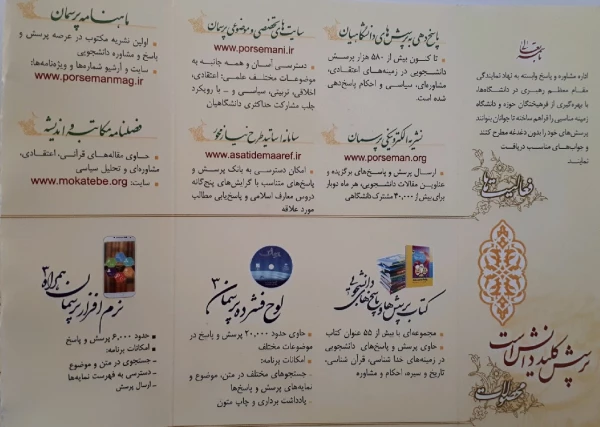 اداره مشاوره و پاسخ وابسته به نهاد نمایندگی
مقام معظم رهبری در دانشگاه‌ها،
با بهره‌گیری از فرهیختگان حوزه و دانشگاه
زمینه مناسبی را فراهم ساخته تا جوانان بتوانند
پرسش‌های خود را بدون دغدغه مطرح کنند
و جواب‌های مناسب دریافت
نمایند.
فعالیت‌ها
پاسخ‌دهی به پرسش‌های دانشگاهیان
تا کنون بیش از ۵۸۰ هزار پرسش
دانشجویی در زمینه‌های اعتقادی،
مشاوره‌ای، سیاسی و احکام پاسخ‌دهی
شده است.
سایت‌های تخصصی و موضوعی پرسمان
www.porsemani.ir
دسترسی آسان و همه جانبه به
موضوعات مختلف علمی: اعتقادی،
اخلاقی، تربیتی، سیاسی و ... با رویکرد
جلب مشارکت حداکثری دانشگاهیان
ماهنامه پرسمان
اولین نشریه مکتوب در عرصه پرسش و
پاسخ و مشاوره دانشجویی
سایت و آرشیو شماره‌ها و ویژه‌نامه‌ها:
www.porsemanmag.ir
نشریه الکترونیکی پرسمان
www.porseman.org
ارسال پرسش و پاسخ‌های برگزیده و
عناوین مقالات دانشجویی، هر ماه دوبار
برای بیش از ۳۰,۰۰۰ مشترک دانشگاهی
سامانه اساتید طرح نیاز محور
www.asatidemaaref.ir
امکان دسترسی به بانک پرسش و
پاسخ‌های متناسب با گرایش‌های پنج‌گانه
دروس معارف اسلامی و پاسخ‌یابی مطالب
مورد علاقه
فصلنامه مکاتبه و اندیشه
حاوی مقاله‌های قرآنی، اعتقادی،
مشاوره‌ای و تحلیل سیاسی
سایت: www.mokatebe.org
پرسش کلید دانش است
محصولات
کتاب پرسش‌ها و پاسخ‌های دانشجویی
مجموعه‌ای با بیش از ۵۵ عنوان کتاب
حاوی پرسش و پاسخ‌های دانشجویی
در زمینه‌های خدا شناسی، قرآن شناسی،
تاریخ و سیره، احکام و مشاوره
لوح فشرده پرسمان ۳
حاوی حدود ۲۰,۰۰۰ پرسش و پاسخ در
موضوعات مختلف
امکانات برنامه:
- جستجوهای مختلف در متن، موضوع و
نمایه‌های پرسش و پاسخ‌ها
- یادداشت برداری و چاپ متون
نرم افزار پرسمان همراه ۳
حدود ۶,۰۰۰ پرسش و پاسخ
امکانات برنامه:
- جستجوی در متن و موضوع
- دسترسی به فهرست نمایه‌ها
- ارسال پرسش